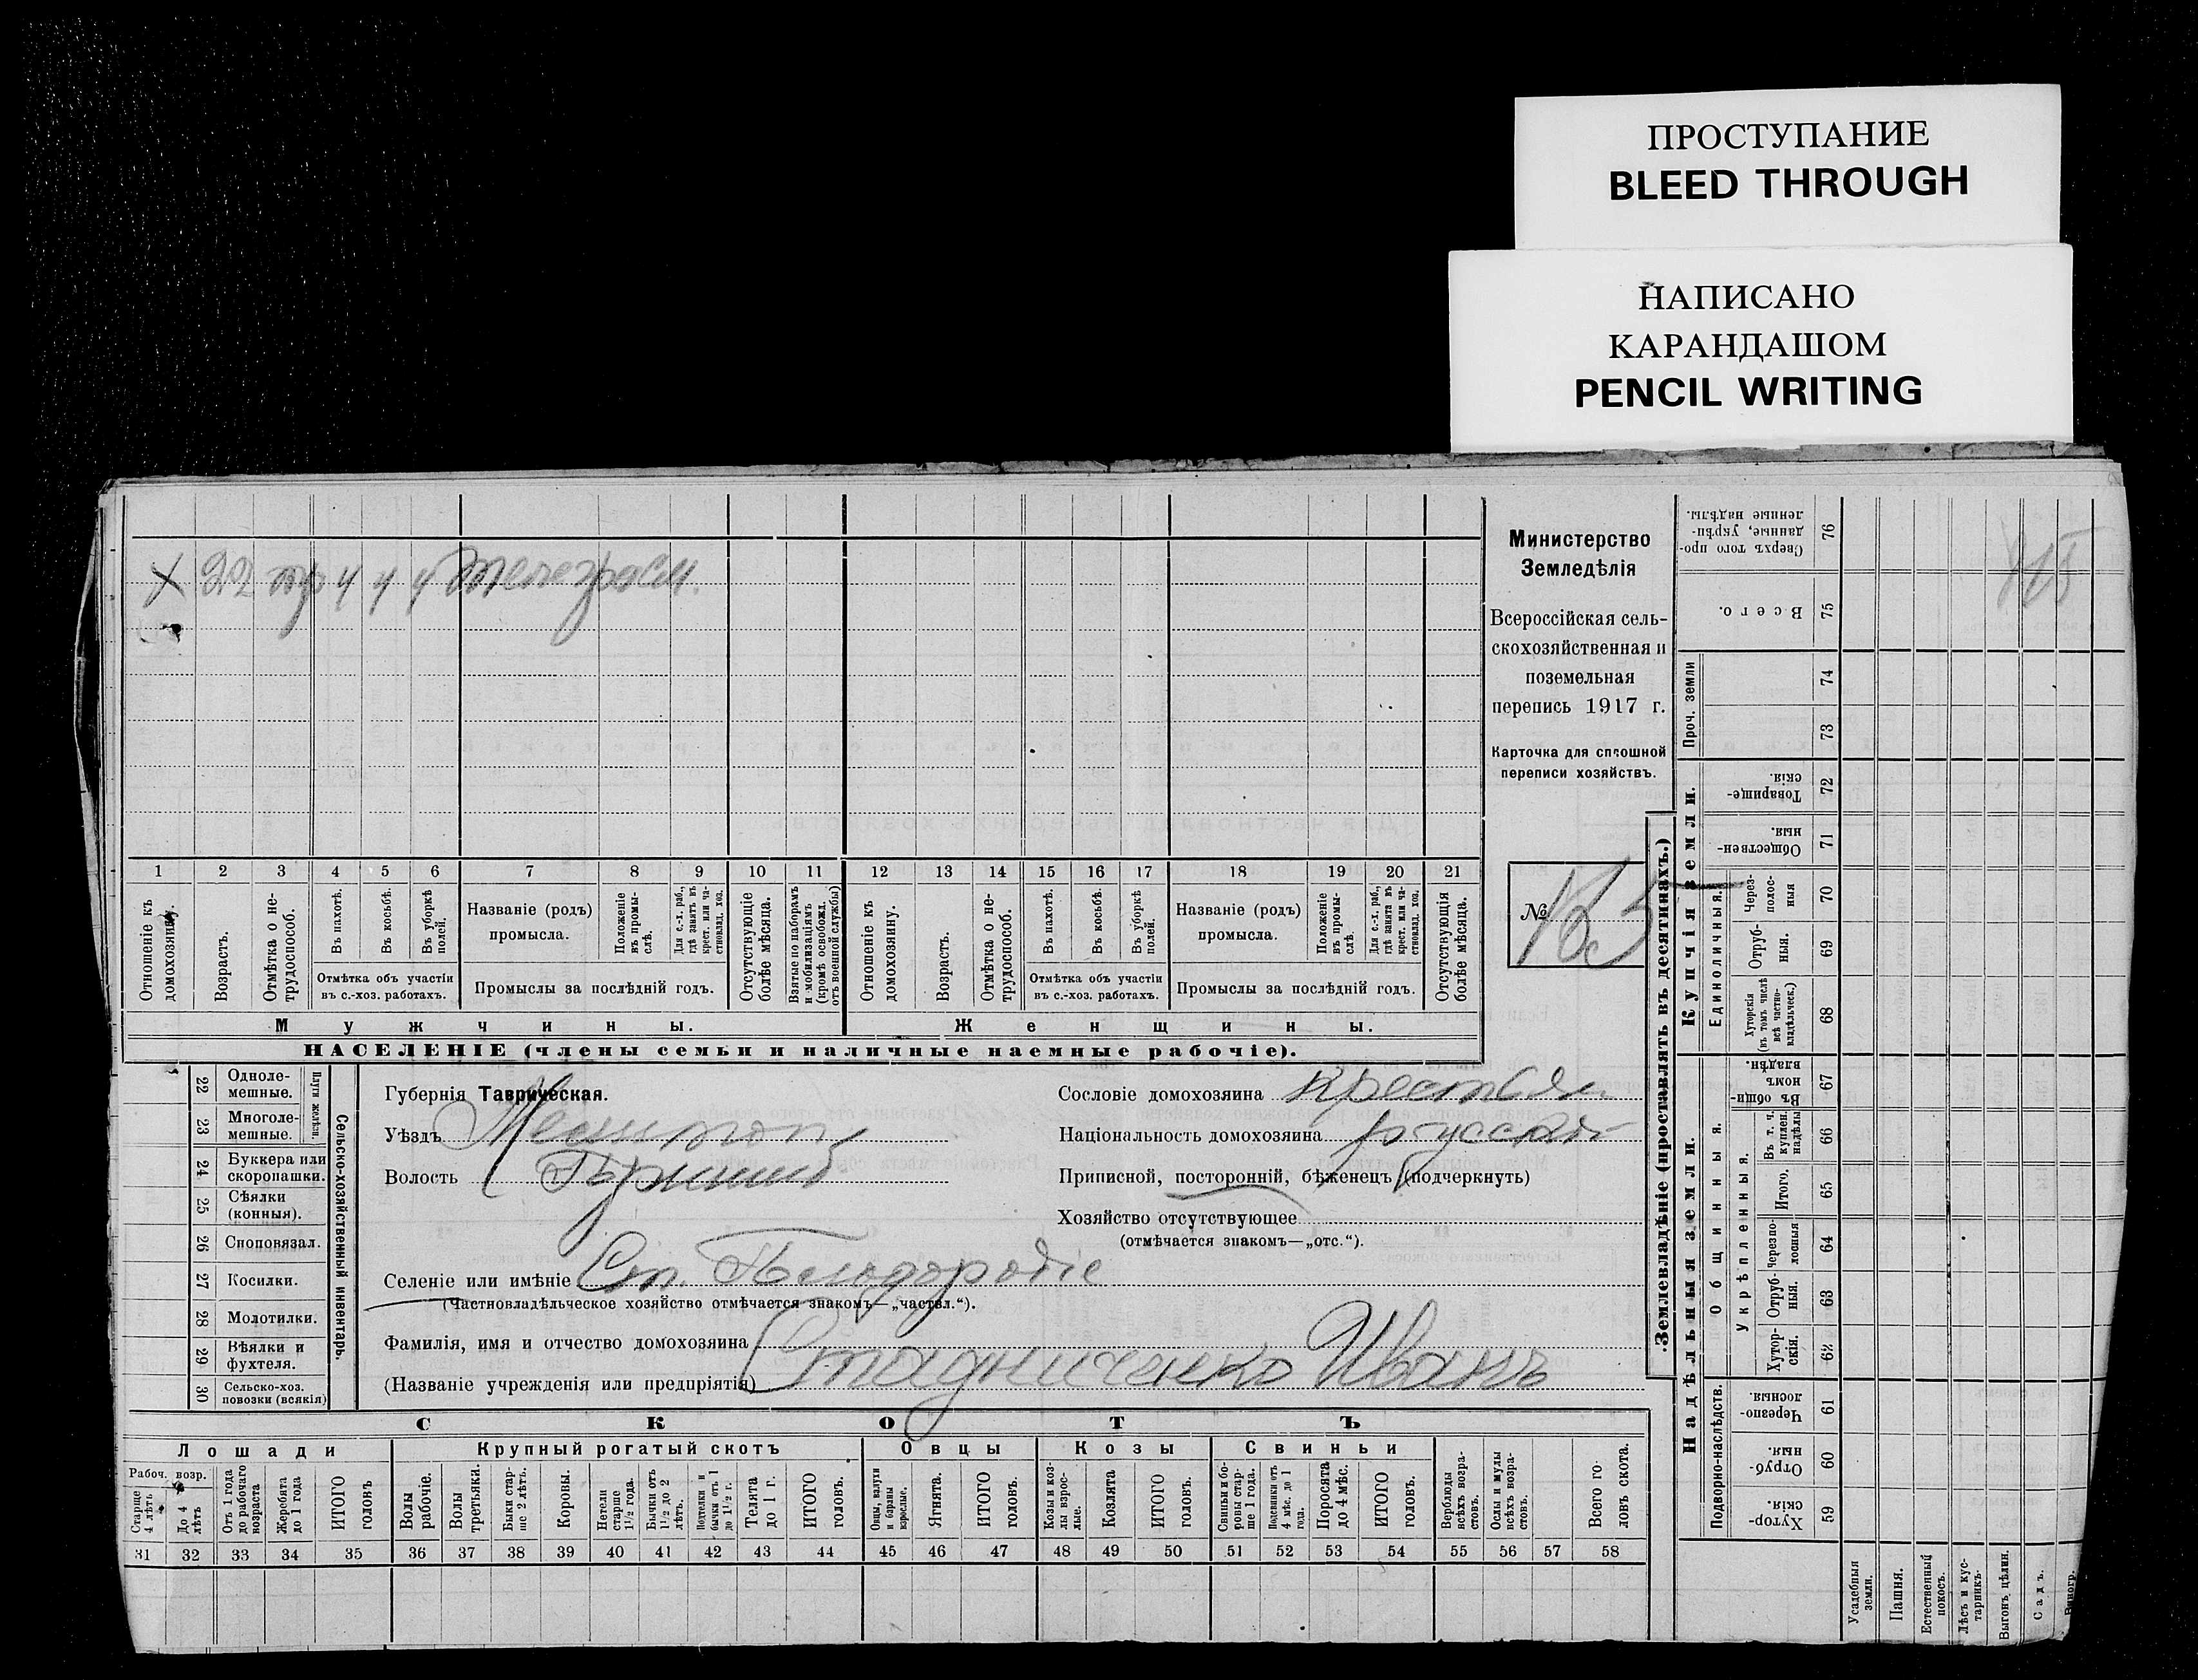 ПРОСТУПАНИЕ
BLEED THROUGH
НАПИСАНО
КАРАНДАШОМ
PENCIL WRITING
Х 22 4 4 4
Министерство
Земледѣлія
Всероссійская сель-
скохозяйственная и
поземельная
перепись 1917 г.
Карточка для сплошной
переписи хозяйствъ.
№
1 2 3 4 5 6 7 8 9 10 11 12 13 14 15 16 17 18 19 20 21
Отношеніе къ домохозяину.
Возрастъ.
Отмѣтка о не-трудоспособ.
Въ пахотѣ.
Въ косьбѣ.
Въ уборкѣ полей.
Отмѣтка объ участіи
въ с.-хоз. работахъ.
Названіе (родъ)
промысла.
Положеніе въ промы-слѣ.
Для с.-х. раб., гдѣ занятъ въ крест. или ча-стновлад. хоз.
Промыслы за послѣдній годъ.
Отсутствующіе болѣе мѣсяца.
Взятые по наборамъ и мобилизаціямъ (кромѣ освобожд. отъ военной службы)
Отношеніе къ домохозяину.
Возрастъ.
Отмѣтка о не-трудоспособ.
Въ пахотѣ.
Въ косьбѣ.
Въ уборкѣ полей.
Отмѣтка объ участіи
въ с.-хоз. работахъ.
Названіе (родъ)
промысла.
Положеніе въ промы-слѣ.
Для с.-х. раб., гдѣ занята въ крест. или ча-стновлад. хоз.
Промыслы за послѣдній годъ.
Отсутствующія болѣе мѣсяца.
Мужчины. Женщины.
НАСЕЛЕНІЕ (члены семьи и наличные наемные рабочіе).
22 Одноле-мешные.
23 Многоле-мешные.
Плуги желѣзн.
24 Буккера или скоропашки.
25 Сѣялки (конныя).
26 Сноповязал.
27 Косилки.
28 Молотилки.
29 Вѣялки и фухтеля.
30 Сельско-хоз. повозки (всякія)
Сельско-хозяйственный инвентарь.
Губернія Таврическая.
Уѣздъ Мелитоп
Волость
Селеніе или имѣніе Ст.
(Частновладѣльческое хозяйство отмѣчается знакомъ—„частвл.“).
Фамилія, имя и отчество домохозяина Стадниченко Иванъ
(Названіе учрежденія или предпріятія)
Сословіе домохозяина крестьян.
Національность домохозяина русскій
Приписной, посторонній, бѣженец (подчеркнуть)
Хозяйство отсутствующее
(отмѣчается знакомъ—„отс.“).
СКОТЪ
Лошади
Крупный рогатый скотъ
Овцы
Козы
Свиньи
Рабоч. возр.
Старше 4 лѣтъ
До 4 лѣтъ
Отъ 1 года до рабочаго возраста
Жеребята до 1 года
ИТОГО головъ
Волы рабочіе.
Волы третьяки.
Быки стар-ше 2 лѣтъ.
Коровы.
Нетели старше 1½ года.
Бычки отъ 1½ до 2 лѣтъ.
Подтелки и бычки отъ 1 до 1½ г.
Телята до 1 г.
ИТОГО головъ.
Овцы, валухи и бараны взрослые.
Ягнята.
ИТОГО головъ.
Козы и коз-лы взрос-лые.
Козлята
ИТОГО головъ.
Свиньи и бо-ровы стар-ше 1 года.
Подсвинки отъ 4 мѣс. до 1 года.
Поросята до 4 мѣс.
ИТОГО головъ.
Верблюды всѣхъ возра-стовъ.
Ослы и мулы всѣхъ возра-стовъ.
Всего го-ловъ скота.
31 32 33 34 35 36 37 38 39 40 41 42 43 44 45 46 47 48 49 50 51 52 53 54 55 56 57 58
Землевладѣніе (проставлять въ десятинахъ.)
Надѣльныя земли.
Купчія земли.
Проч. земли
Подворно-наслѣдств.
Общинныя.
Укрѣпленныя.
Единоличныя.
Сверхъ того про-данные, укрѣп-ленные надѣлы. 76
Всего. 75
74
73
Товарище-скія. 72
Обществен-ныя. 71
Через-полос-ныя 70
Отруб-ныя. 69
Хуторскія (въ томъ числѣ всѣ частно-владѣльческ.) 68
Въ общин-номъ владѣн. 67
Въ т. ч. куплен. надѣлы 66
Итого. 65
Черезпо-лосныя 64
Отруб-ныя. 63
Хутор-скія. 62
Черезпо-лосныя. 61
Отруб-ныя. 60
Хутор-скія. 59
Усадебныя земли.
Пашня.
Естественный покосъ.
Лѣсъ и кус-тарникъ.
Выгонъ, цѣлин.
Садъ.
Виногр.